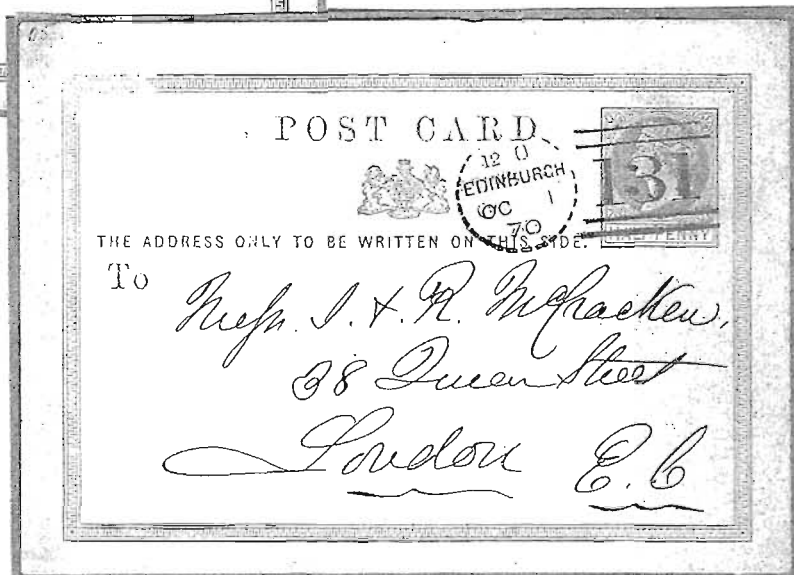 POST CARD
12 0
EDINBURGH
OC 1
70
131
HALFPENNY
THE ADDRESS ONLY TO BE WRITTEN ON THIS SIDE.
To
Messrs. J. & R. McCracken,
38 Queen Street
London E.C